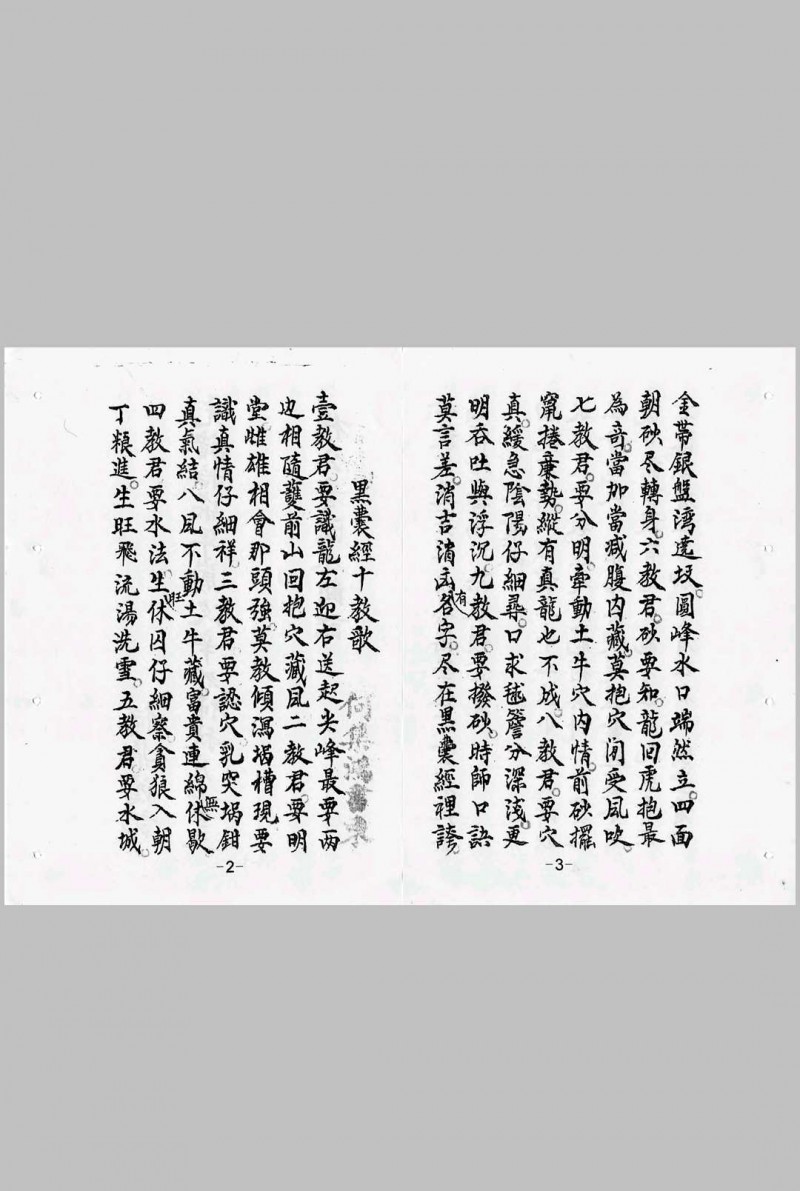 黑囊經十教歌
壹教君。要識龍左迎右送起尖峰最要两
边相隨䕶前山回抱穴藏風二教君要明
堂。雌雄相會那頭強。莫教傾瀉堝槽現要
識真情仔細祥三教君要認穴乳突堝鉗
真氣結八風不動土牛藏。富貴連綿無休歇
四教君要水法生旺休囚仔細察。貪狼入朝
丁粮進。生旺飛流湯洗雪。五教君要水城
-2-
金帶銀盤湾遶。圓峰水口端然立。四面
朝砂尽轉身。六教君。砂要知。龍回虎抱最
為奇。當加當减腹內藏。莫抱穴间受風吹
七教君。要分明。牽動土牛穴內情。前砂擺
竄捲勢。縱有真龍也不成。八教君。要穴
真。緩急陰陽仔細尋。口求毬簷分深浅。更
明吞吐與浮沉。九教君。要撥砂。時師口訣
莫言差。消吉消凶各有字。尽在黑囊經裡誇。
-3-